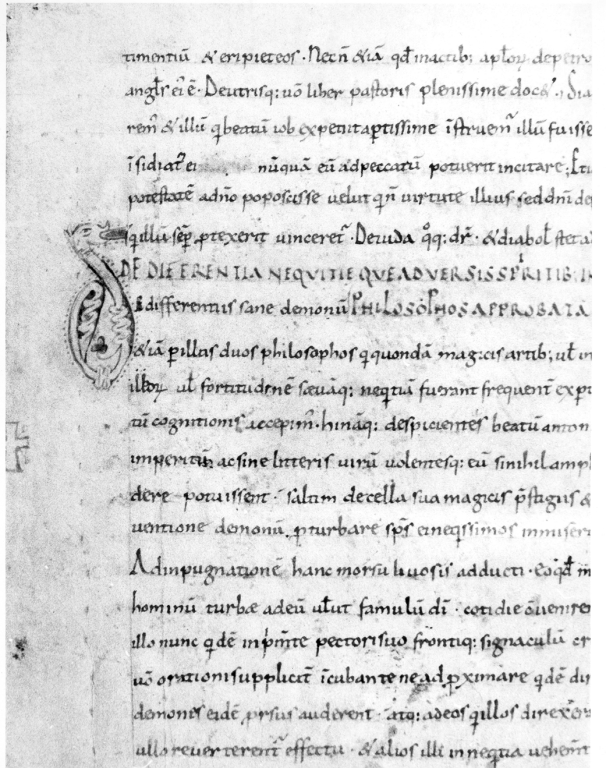 timentiū & eripi& eos · Necñ &iā qđ inactib; aplor̄ depetro
angls ei ē · Deutrisq: uō liber pastoris plenissime doc& ·
rem̄ & illū q̄ beatū iob expetit aptissime īstruem̄ illū fuisse
īsidiat̄ ei nūquā eū adpeccatū potuerit incitare ;
potestatē adño poposcisse uelut qñ uirtute illius sed dñi
q̄ illū sēp p̄texerit uincer& · Deiuda q̄q: dr̄ · &diabol
DE DIFERENTIA NEQUITIE QUE ADUERSIS SPIRITIB; IN
differentiis sane demonū PHILOSOPHOS APPROBATA
&iā p illus duos philosophos q quondā magicis artib; uł
illor̄ uł fortitudinē sæuāq: neqtiā fuerant frequent̄
tū cognitionis accepim̄ · hināq: despicientes beatū anton
imperitū ac sine litteris uirū uolentesq: eū si nihil ampl
dere potuissent · saltim de cella sua magicis p̄stigiis &
uentione demonū pturbare sps ei neqssimos inmiser
Ad inpugnationē hanc morsu liuosis adducti · eo qđ in
hominū turbæ ad eū uł ut famulū dī · cotidie ōuenire
illo nunc qdē inpm̄te pectori suo frontiq: signaculū cr
uō orationi supplicit̄ īcubante ne adpximare qdē
demones eidē p̄rsus auderent · atq: ad eos q illos direxer
ullo reuerterent̄ effectu · & alios illi in neqtia uehem̄